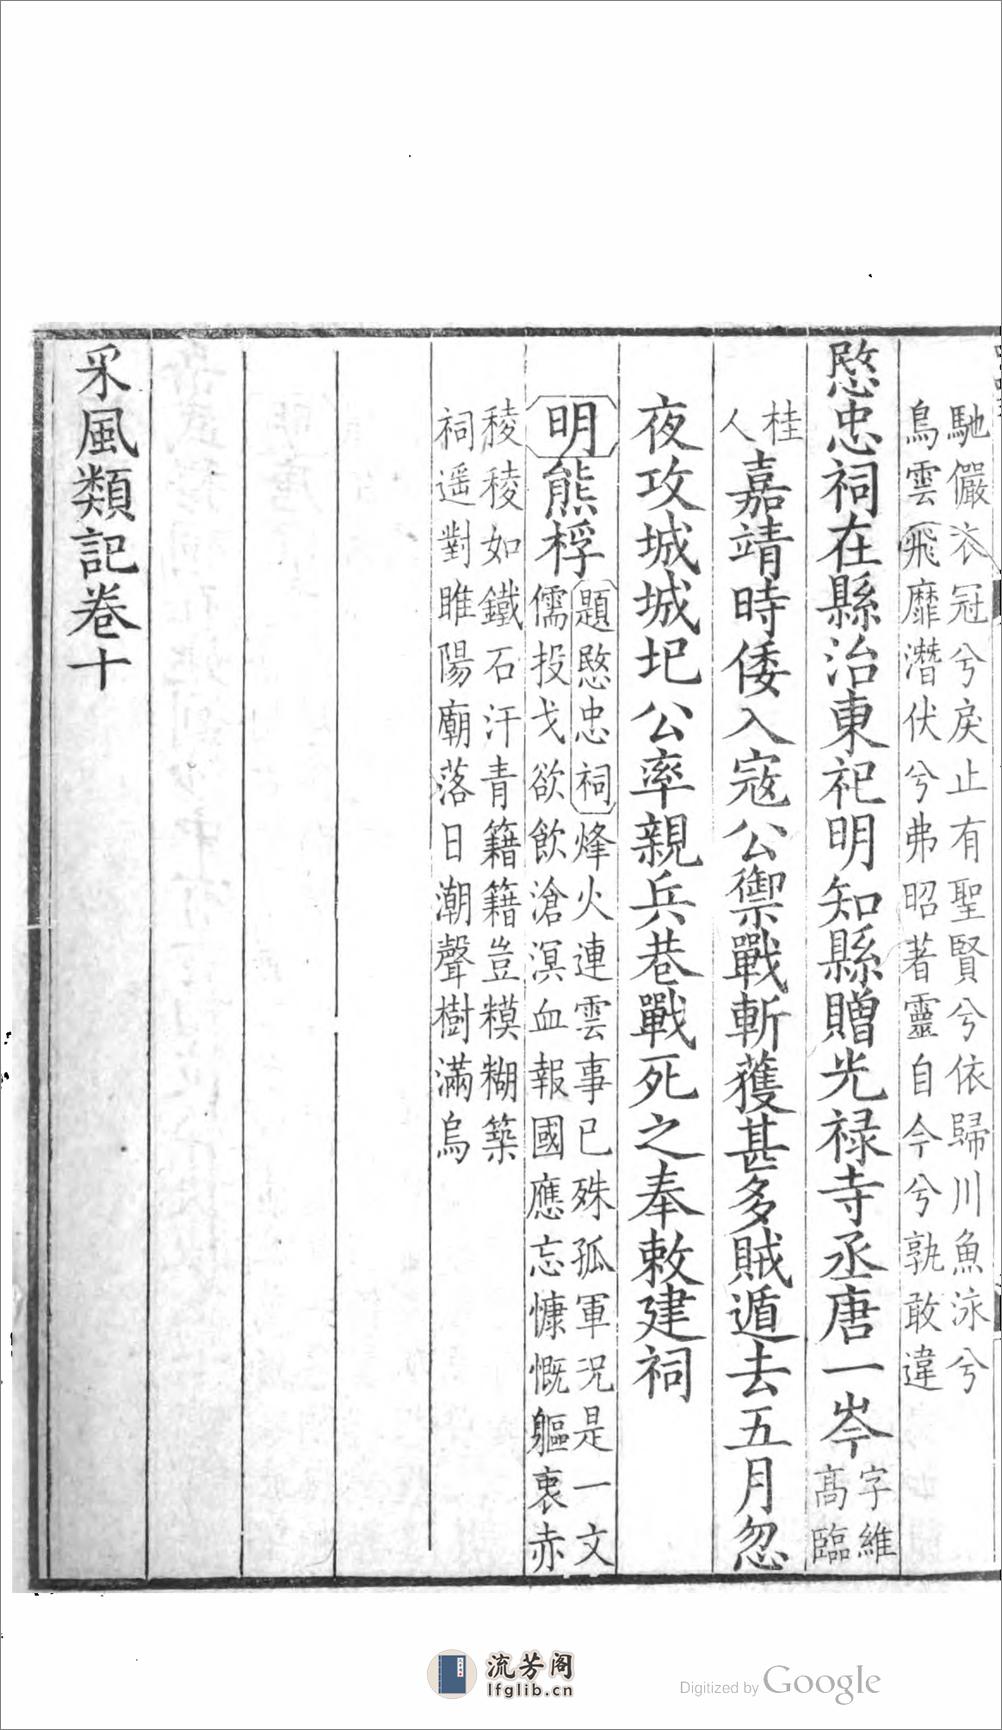 馳儼衣冠兮戾止有聖賢兮依歸川魚泳兮
鳥雲飛靡潛伏兮弗昭著靈自今兮孰敢違
愍忠祠在縣治東祀明知縣贈光禄寺丞唐一岑字維
高臨
桂
人
嘉靖時倭入寇公禦戰斬獲甚多賊遁去五月忽
夜攻城城圯公率親兵巷戰死之奉敕建祠
明熊桴題愍忠祠烽火連雲事已殊孤軍況是一文
儒投戈欲飲滄溟血報國應忘慷慨軀衷赤
稜稜如鐵石汗青籍籍豈糢糊築
祠遥對睢陽廟落日潮聲樹滿烏
采風類記卷十
流芳阁
lfglib.cn
Digitized by Google